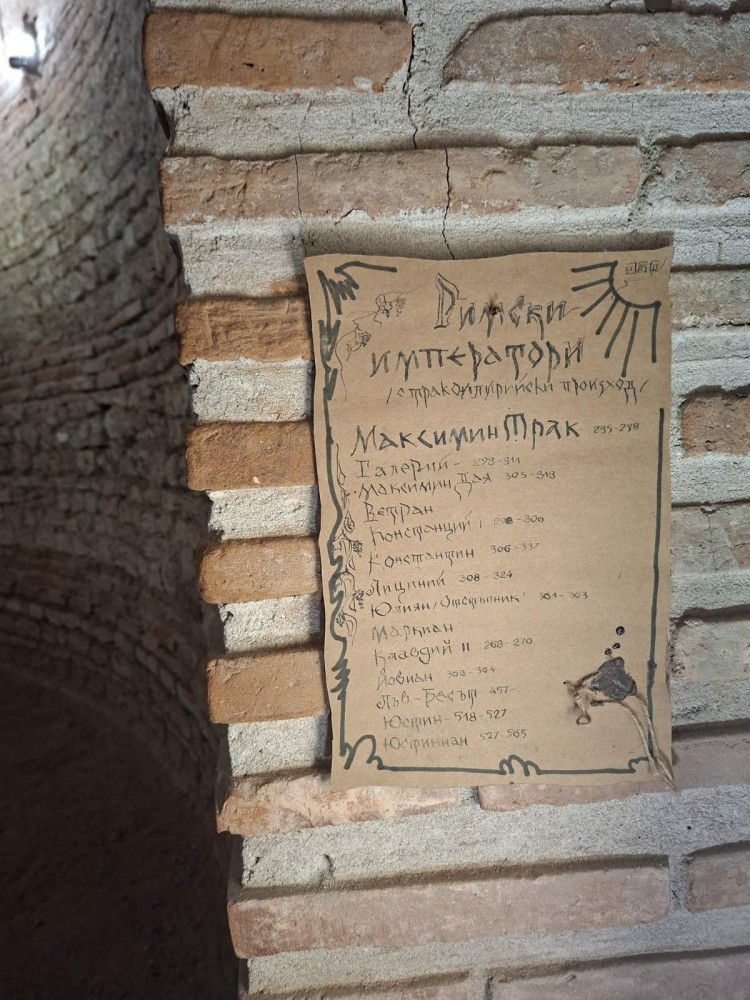 Римски
императори
/с тракоилирийски произход/
Максимин Трак 235-238
Галерий - 293-311
Максимин Дая 305-313
Ветран
Констанций I 306
Константин 306-337
Лициний 308-324
Юлиян /Отстъпник/ 361-363
Маркиан
Клавдий II 268-270
Йовиан 363-364
Лъв-Бесът 457-
Юстин-518-527
Юстиниан 527-565